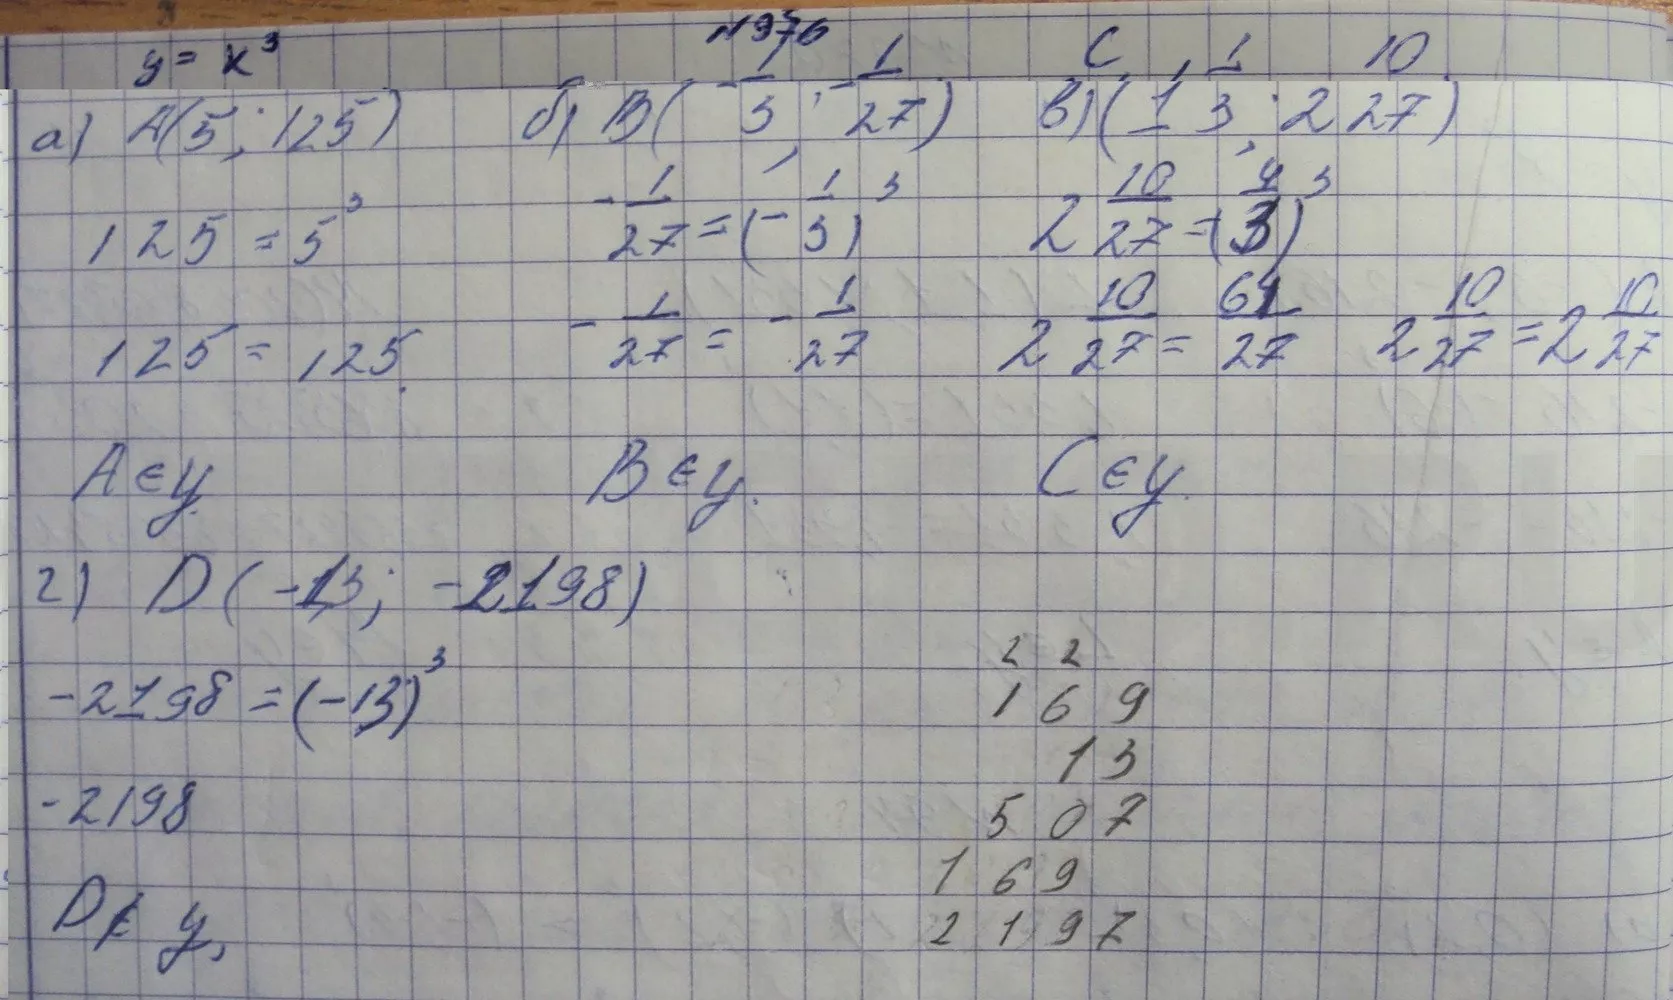 №976
y = x³
а) A(5; 125) б) B(-1/3; -1/27) в) C(1 1/3; 2 10/27)
125 = 5³ -1/27 = (-1/3)³ 2 10/27 = (4/3)³
125 = 125. -1/27 = -1/27 2 10/27 = 64/27 2 10/27 = 2 10/27
A ∈ y. B ∈ y. C ∈ y.
г) D(-13; -2198)
-2198 = (-13)³
-2198
D ∉ y,
2 2
169
13
507
169
2197